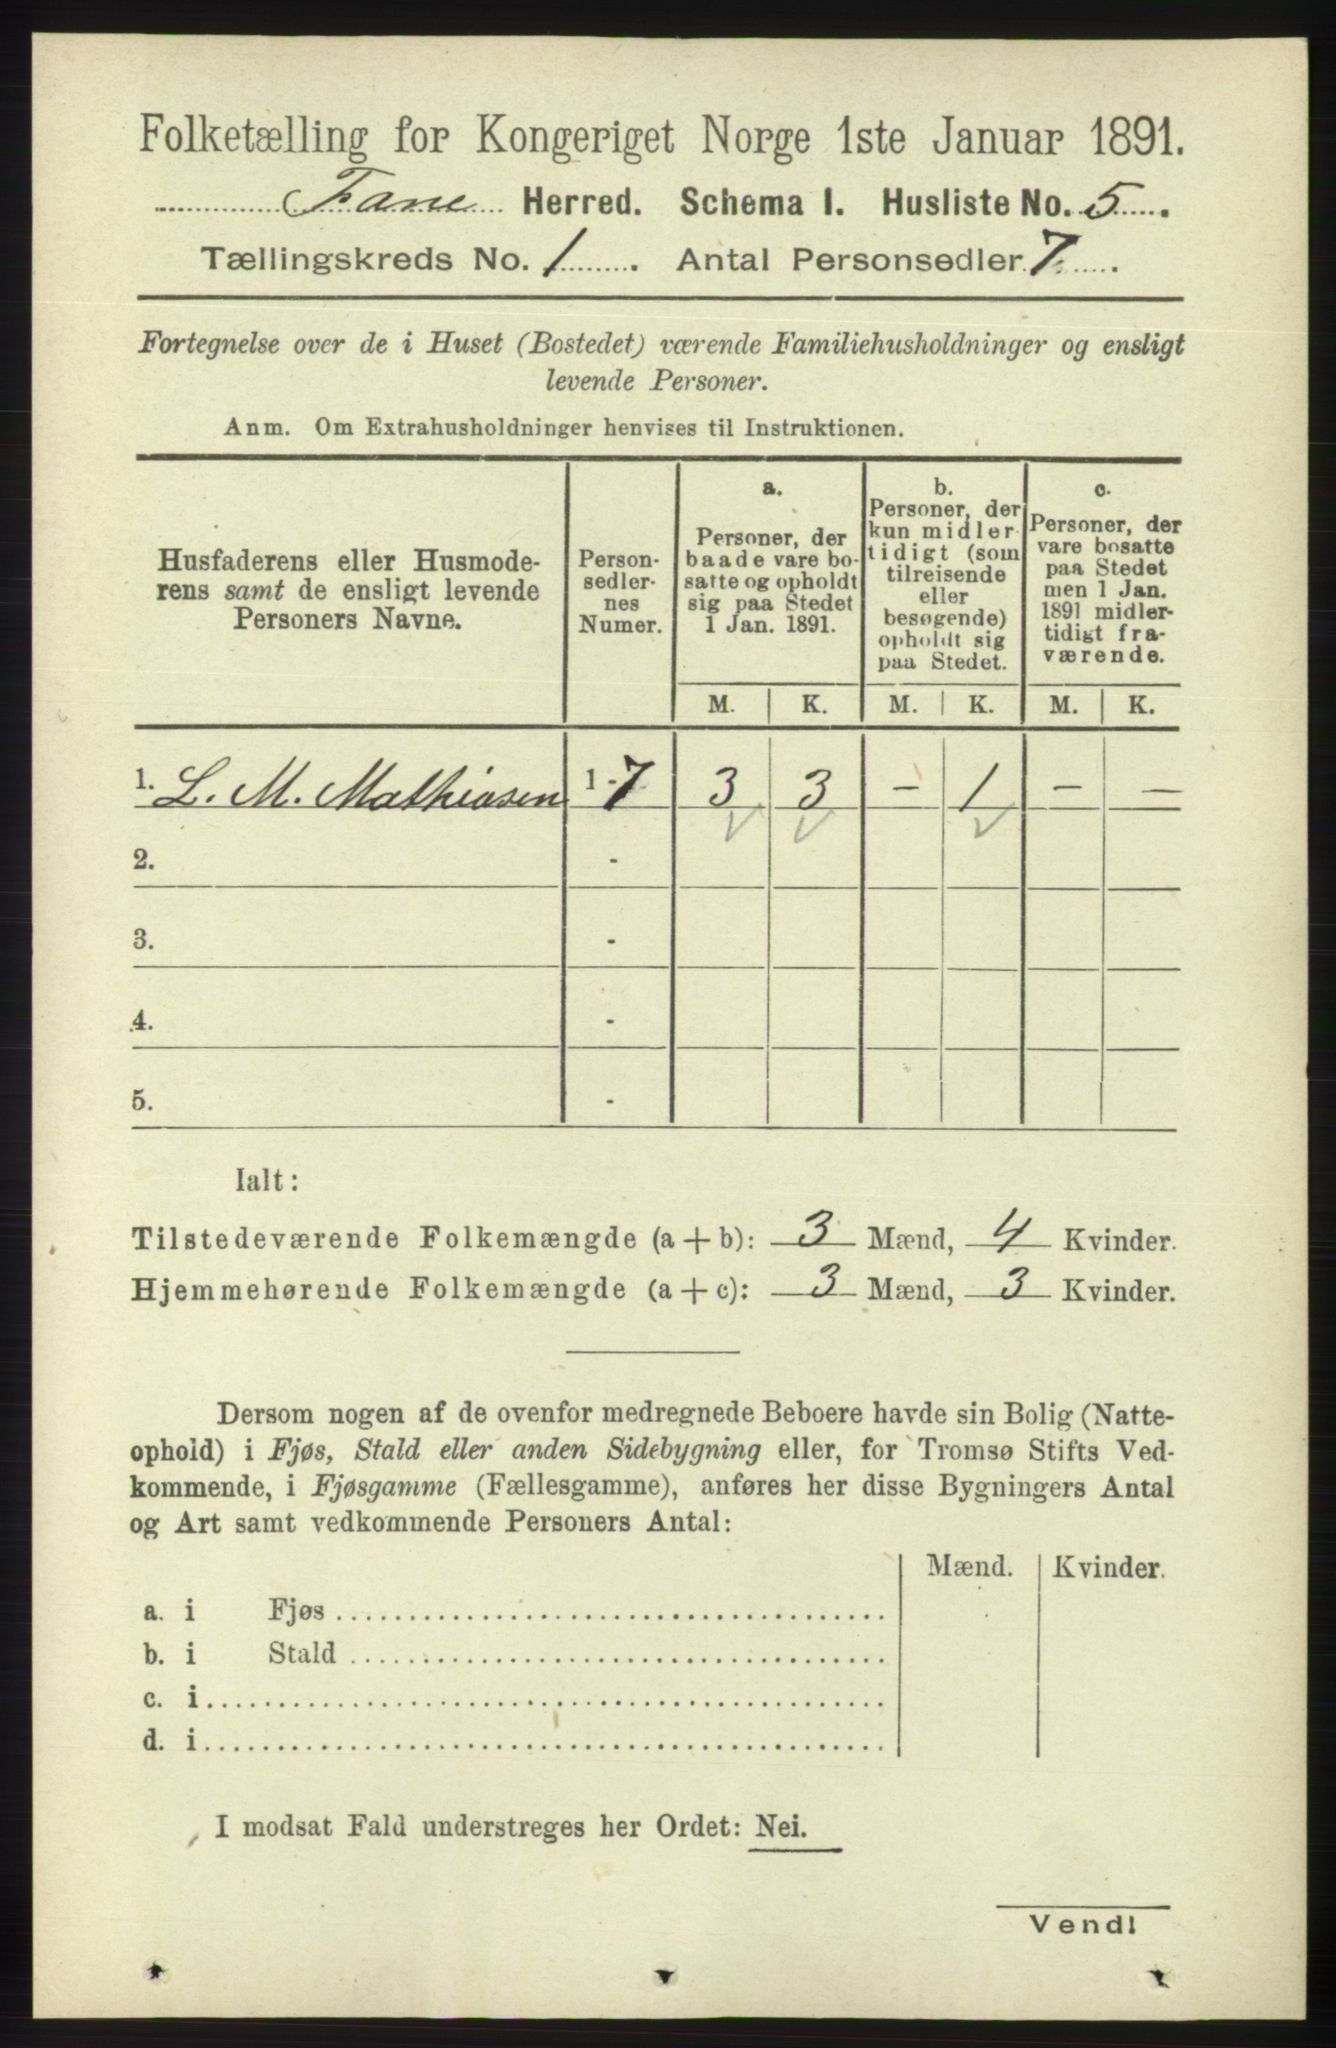 Folketælling for Kongeriget Norge 1ste Januar 1891.
Fane Herred. Schema I. Husliste No. 5.
Tællingskreds No. 1. Antal Personsedler 7.
Fortegnelse over de i Huset (Bostedet) værende Familiehusholdninger og ensligt
levende Personer.
Anm. Om Extrahusholdninger henvises til Instruktionen.
Husfaderens eller Husmode-
rens samt de ensligt levende
Personers Navne.
Person-
sedler-
nes
Numer.
a.
Personer, der
baade vare bo-
satte og opholdt
sig paa Stedet
1 Jan. 1891.
b.
Personer, der
kun midler-
tidigt (som
tilreisende
eller
besøgende)
opholdt sig
paa Stedet.
c.
Personer, der
vare bosatte
paa Stedet
men 1 Jan.
1891 midler-
tidigt fra-
værende.
M. K. M. K. M. K.
1. L. M. Mathiasen 1-7 3 3 - 1 - -
2. -
3. -
4. -
5. -
Ialt:
Tilstedeværende Folkemængde (a + b): 3 Mænd, 4 Kvinder.
Hjemmehørende Folkemængde (a + c): 3 Mænd, 3 Kvinder.
Dersom nogen af de ovenfor medregnede Beboere havde sin Bolig (Natte-
ophold) i Fjøs, Stald eller anden Sidebygning eller, for Tromsø Stifts Ved-
kommende, i Fjøsgamme (Fællesgamme), anføres her disse Bygningers Antal
og Art samt vedkommende Personers Antal:
Mænd. Kvinder.
a. i Fjøs
b. i Stald
c. i
d. i
I modsat Fald understreges her Ordet: Nei.
Vend!